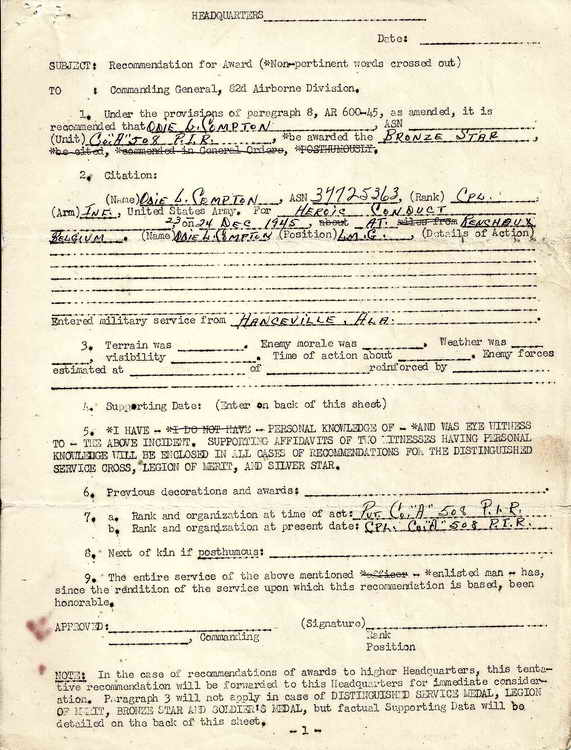 HEADQUARTERS
Date:
SUBJECT: Recommendation for Award (*Non-pertinent words crossed out)
TO : Commanding General, 82d Airborne Division.
1. Under the provisions of paragraph 8, AR 600-45, as amended, it is
recommended that ODIE L. COMPTON, ASN
(Unit) Co. "A" 508 P.I.R., *be awarded the BRONZE STAR,
*be cited, *commended in General Orders, *POSTHUMOUSLY.
2. Citation:
(Name) ODIE L. COMPTON, ASN 34725363, (Rank) CPL.
(Arm) INF., United States Army. For HEROIC CONDUCT
23 on 24 DEC 1945, about AT miles from RENCHEUX
BELGIUM. (Name) ODIE L. COMPTON (Position) L.M.G., (Details of Action)
Entered military service from HANCEVILLE, ALA.
3. Terrain was . Enemy morale was . Weather was
, visibility . Time of action about . Enemy forces
estimated at of reinforced by
4. Supporting Date: (Enter on back of this sheet)
5. *I HAVE - *I DO NOT HAVE - PERSONAL KNOWLEDGE OF - *AND WAS EYE WITNESS
TO - THE ABOVE INCIDENT. SUPPORTING AFFIDAVITS OF TWO WITNESSES HAVING PERSONAL
KNOWLEDGE WILL BE ENCLOSED IN ALL CASES OF RECOMMENDATIONS FOR THE DISTINGUISHED
SERVICE CROSS, LEGION OF MERIT, AND SILVER STAR.
6. Previous decorations and awards:
7. a. Rank and organization at time of act: Pvt. Co. "A" 508 P.I.R.
b. Rank and organization at present date: CPL. Co. "A" 508 P.I.R.
8. Next of kin if posthumous:
9. The entire service of the above mentioned *officer - *enlisted man - has,
since the rendition of the service upon which this recommendation is based, been
honorable.
APPROVED: (Signature)
, Commanding Rank
Position
NOTE: In the case of recommendations of awards to higher Headquarters, this tenta-
tive recommendation will be forwarded to this Headquarters for immediate consider-
ation. Paragraph 3 will not apply in case of DISTINGUISHED SERVICE MEDAL, LEGION
OF MERIT, BRONZE STAR AND SOLDIER'S MEDAL, but factual Supporting Data will be
detailed on the back of this sheet.
- 1 -